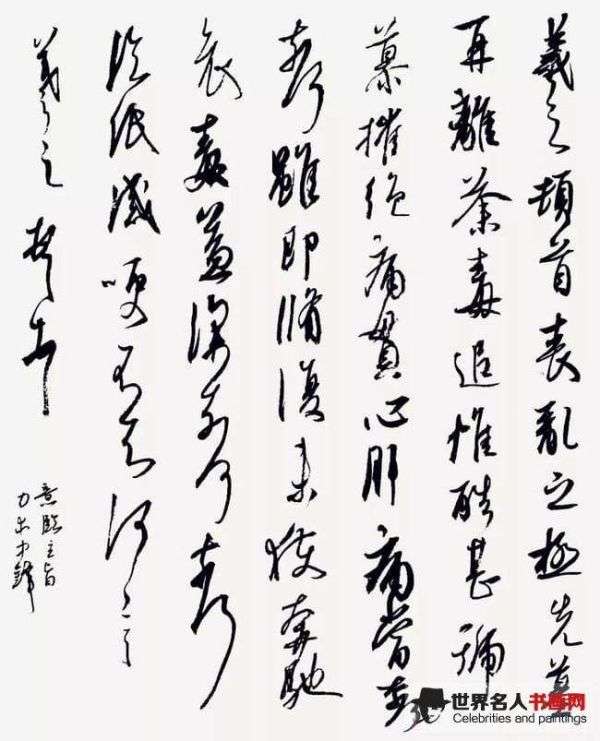 羲之頓首喪亂之極先墓
再離荼毒追惟酷甚號
慕摧絕痛貫心肝痛當奈何
奈何雖即脩復未獲奔馳
哀毒益深奈何奈何
臨紙感哽不知何言
羲之頓首
意臨主旨
力中鋒
世界名人书画网
Celebrities and paintings